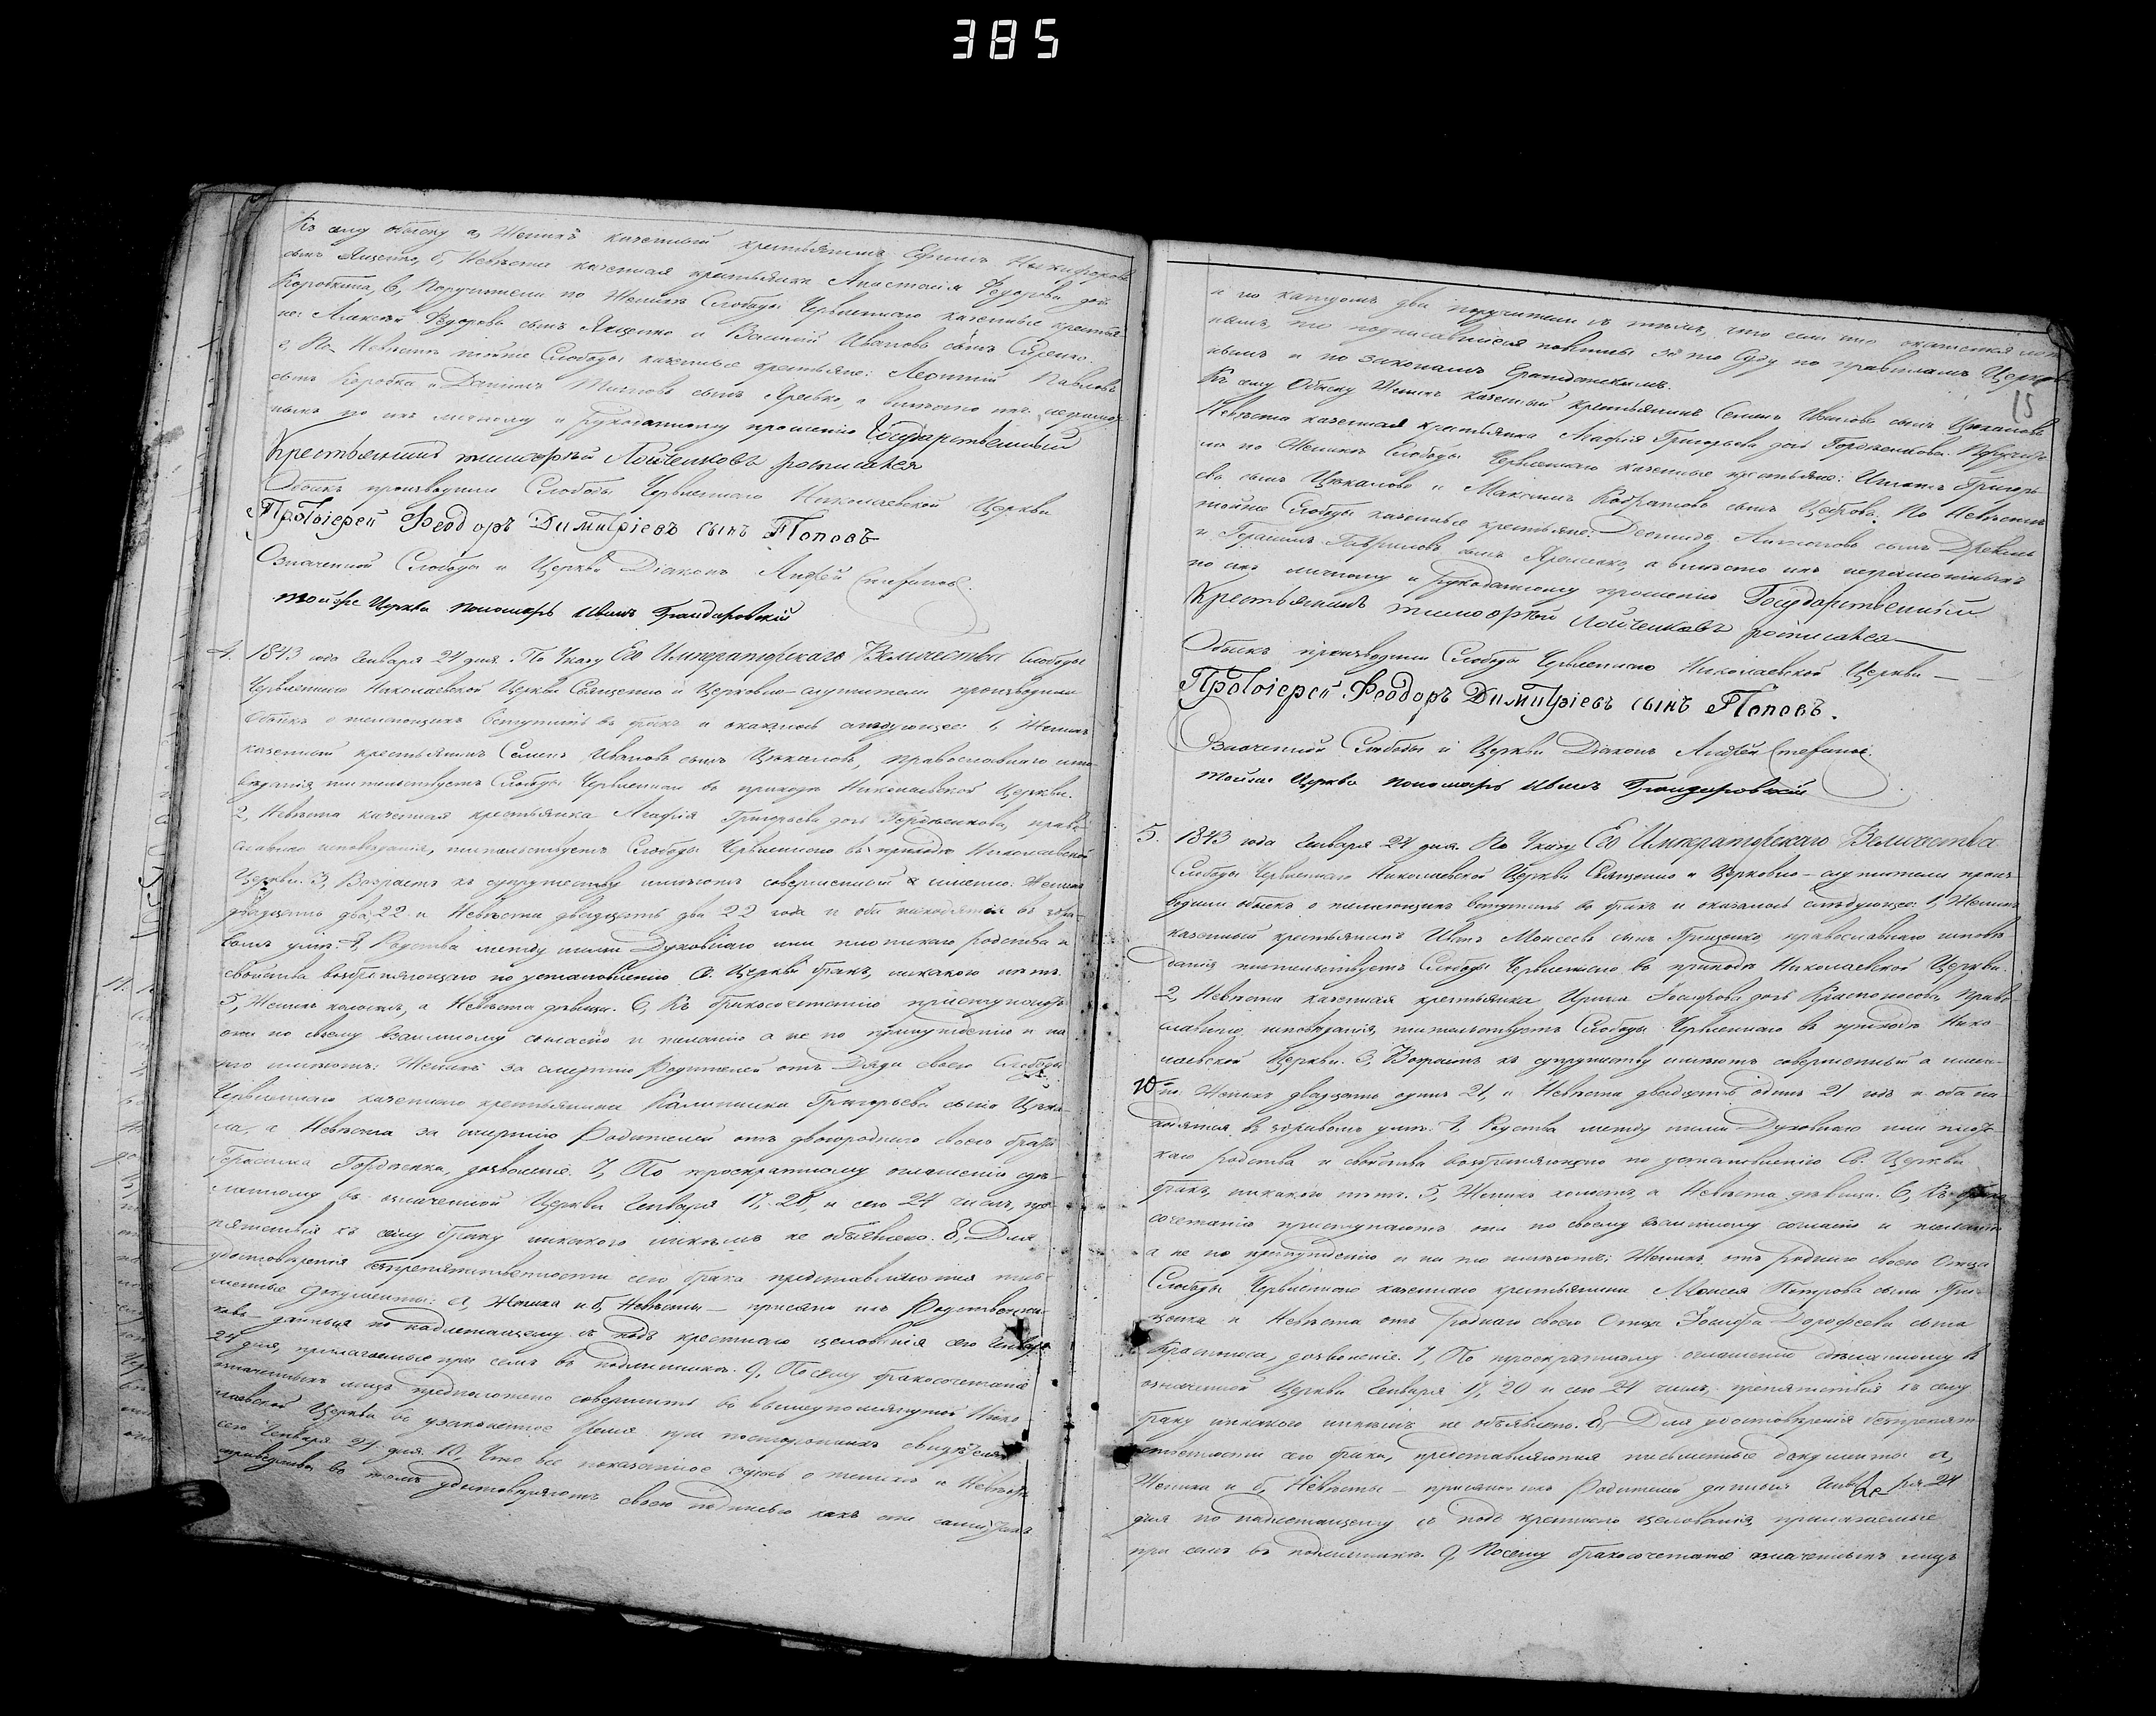 385
Къ сему обыску а, Женихъ казенный крестьянинъ Ефимъ Никифоровъ
сынъ Ященко, б, Невѣста казенная крестьянка Анастасія Ѳедорова дочь
Коробкина, в, Поручители по Женихѣ Слободы Червленнаго казенные крестья-
не: Алексѣй Ѳедоровъ сынъ Ященко и Василій Ивановъ сынъ
г, По Невѣстѣ тойже Слободы казенные крестьяне: Леонтій Павловъ
сынъ Коробка и Даніилъ сынъ а вмѣсто ихъ неграмот
ныхъ по ихъ личному и рукоданному прошенію Государственный
Крестьянинъ тимофѣй росписался
Обыскъ производили Слободы Червленнаго Николаевской Церкви
Протоіерей Ѳеодоръ Димитріевъ сынъ Поповъ
Означенной Слободы и Церкви Діаконъ Андрей Стефановъ
тойже Церкви пономарь Иванъ
4. 1843 года Генваря 24 дня. По Указу Его Императорскаго Величества Слободы
Червленнаго Николаевской Церкви Священно и Церковно-служители производили
Обыскъ о желающихъ вступить въ бракъ и оказалось слѣдующее: 1, Женихъ
казенный крестьянинъ Семенъ Ивановъ сынъ Цукановъ, православнаго испо-
вѣданія жительствуетъ Слободы Червленнаго въ приходѣ Николаевской Церкви.
2, Невѣста казенная крестьянка Агафія Григорьева дочь Гордѣенкова, право-
славнаго исповѣданія, жительствуетъ Слободы Червленнаго въ приходѣ Николаевской
Церкви. 3, Возрастъ къ супружеству имѣютъ совершенный а именно: Женихъ
двадцать два 22 и Невѣста двадцать два 22 года и оба находятся въ здра-
вомъ умѣ. 4, Родства между ними Духовнаго или плотскаго родства и
свойства возбраняющаго по установленію Св. Церкви бракъ, никакого нѣтъ.
5, Женихъ холостъ, а Невѣста дѣвица. 6, Къ бракосочетанію приступаютъ
они по своему взаимному согласію и желанію а не по принужденію и на
то имѣютъ: Женихъ за смертію Родителей отъ Дяди своего Слободы
Червленнаго казеннаго крестьянина Калинника Григорьева сына Цука-
на, а Невѣста за смертію Родителей отъ двоюроднаго своего брата
Герасима Гордѣенка, дозволеніе. 7, По троекратному оглашенію сдѣ-
ланному въ означенной Церкви Генваря 17, 20, и сего 24 чиселъ, пре-
пятствія къ сему браку никакого никѣмъ не объявлено. 8, Для
удостовѣренія безпрепятственности сего брака представляются пись-
менные документы: а, Жениха и б, Невѣсты — присяги ихъ Родственни-
ковъ данныя по надлежащему съ подъ крестнаго целованія сего Генваря
24 дня, прилагаемые при семъ въ подлинникѣ. 9, Посему бракосочетаніе
означенныхъ лицъ предположено совершить въ вышеупомянутой Нико
лаевской Церкви въ узаконенное время при постороннихъ свидѣтеляхъ
сего Генваря 24 дня. 10, Что все показанное здѣсь о женихѣ и Невѣстѣ
справедливо въ томъ удостовѣряютъ своею подписью какъ они сами такъ
15
и по каждомъ два поручителя съ тѣмъ, что если что окажется лож
нымъ, то подписавшіеся повинны за то суду по правиламъ Церков
нымъ и по законамъ Гражданскимъ.
Къ сему Обыску Женихъ казенный крестьянинъ Семенъ Ивановъ сынъ Цукановъ
Невѣста казенная крестьянка Агафія Григорьева дочь Гордѣенкова. Поручите
ли по Женихѣ Слободы Червленнаго казенные крестьяне: Григорь
евъ сынъ Цукановъ и Максимъ сынъ По Невѣстѣ
тойже Слободы казенные крестьяне: сынъ
и Гавриловъ сынъ а вмѣсто ихъ неграмотныхъ
по ихъ личному и рукоданному прошенію Государственный
Крестьянинъ тимофѣй росписался
Обыскъ производили Слободы Червленнаго Николаевской Церкви —
Протоіерей Ѳеодоръ Димитріевъ сынъ Поповъ.
Означенной Слободы и Церкви Діаконъ Андрей Стефановъ
тойже Церкви пономарь Иванъ
5. 1843 года Генваря 24 дня. По Указу Его Императорскаго Величества
Слободы Червленнаго Николаевской Церкви Священно и Церковно-служители произ-
водили обыскъ о желающихъ вступить въ бракъ и оказалось слѣдующее: 1, Женихъ
казенный крестьянинъ Иванъ Моисеевъ сынъ Гриценко, православнаго исповѣ
данія жительствуетъ Слободы Червленнаго въ приходѣ Николаевской Церкви.
2, Невѣста казенная крестьянка Ирина Іосифова дочь Красноносова, Право
славнаго исповѣданія, жительствуетъ Слободы Червленнаго въ приходѣ Нико
лаевской Церкви. 3, Возрастъ къ супружеству имѣютъ совершенный а имен-
но: Женихъ двадцать одинъ 21, и Невѣста двадцать одинъ 21 годъ и оба на
ходятся въ здравомъ умѣ. 4, Родства между ними Духовнаго или плотс-
каго родства и свойства возбраняющаго по установленію Св. Церкви
бракъ, никакого нѣтъ. 5, Женихъ холостъ, а Невѣста дѣвица. 6, Къ брако
сочетанію приступаютъ они по своему взаимному согласію и желанію
а не по принужденію и на то имѣютъ: Женихъ отъ роднаго своего Отца
Слободы Червленнаго казеннаго крестьянина Моисея Петрова сына Гри-
ценка и Невѣста отъ роднаго своего Отца Іосифа Дорофеева сына
Красноноса, дозволеніе. 7, По троекратному оглашенію сдѣланному въ
означенной Церкви Генваря 17, 20 и сего 24 чиселъ, препятствія къ сему
браку никакого никѣмъ не объявлено. 8, Для удостовѣренія безпрепят-
ственности сего брака, представляются письменные документы а,
Жениха и б, Невѣсты — присяги ихъ Родителей данныя Генваря 24
дня по надлежащему съ подъ крестнаго целованія, прилагаемые
при семъ въ подлинникѣ. 9, Посему бракосочетаніе означенныхъ лицъ